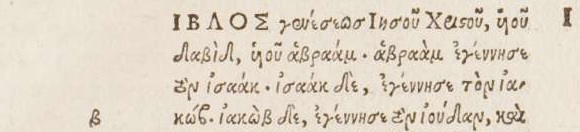 ΙΒΛΟΣ γενέσεως Ἰησοῦ Χριστοῦ, ὑιοῦ Ι
Δαβὶδ, ὑιοῦ ἀβραάμ. ἀβραὰμ ἐγέννησε
τὸν ἰσαάκ. ἰσαὰκ δὲ, ἐγέννησε τὸν ἰα-
β κώβ. ἰακὼβ δὲ, ἐγέννησε τὸν ἰούδαν, καὶ